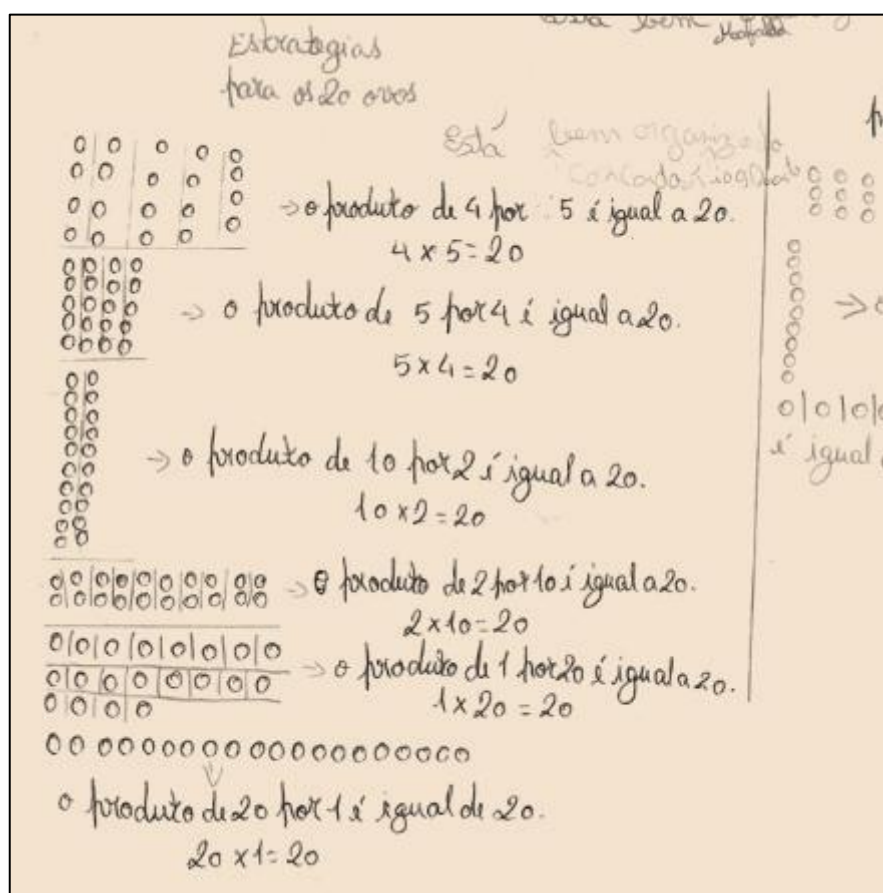 está bem
Mafalda
Estrategias
para os 20 ovos
Está bem organizado
→ o produto de 4 por 5 é igual a 20.
4 x 5 = 20
→ o produto de 5 por 4 é igual a 20.
5 x 4 = 20
→ o produto de 10 por 2 é igual a 20.
10 x 2 = 20
→ o produto de 2 por 10 é igual a 20.
2 x 10 = 20
→ o produto de 1 por 20 é igual a 20.
1 x 20 = 20
o produto de 20 por 1 é igual de 20.
20 x 1 = 20
→ o
é igual